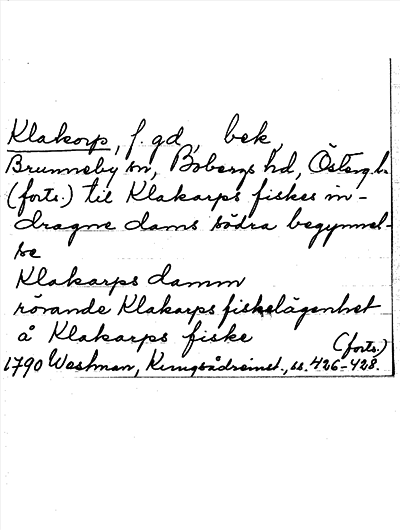 Klakorp, f. gd, bek,
Brunneby sn, Bobergs hd, Österg. l.
(forts.) til Klakarps fiskes in-
dragne dams södra begynnel-
se
Klakarps damm
rörande Klakarps fiskelägenhet
å Klakarps fiske
(forts.)
1790 Westman, Kungsådreinst., ss. 426-428.